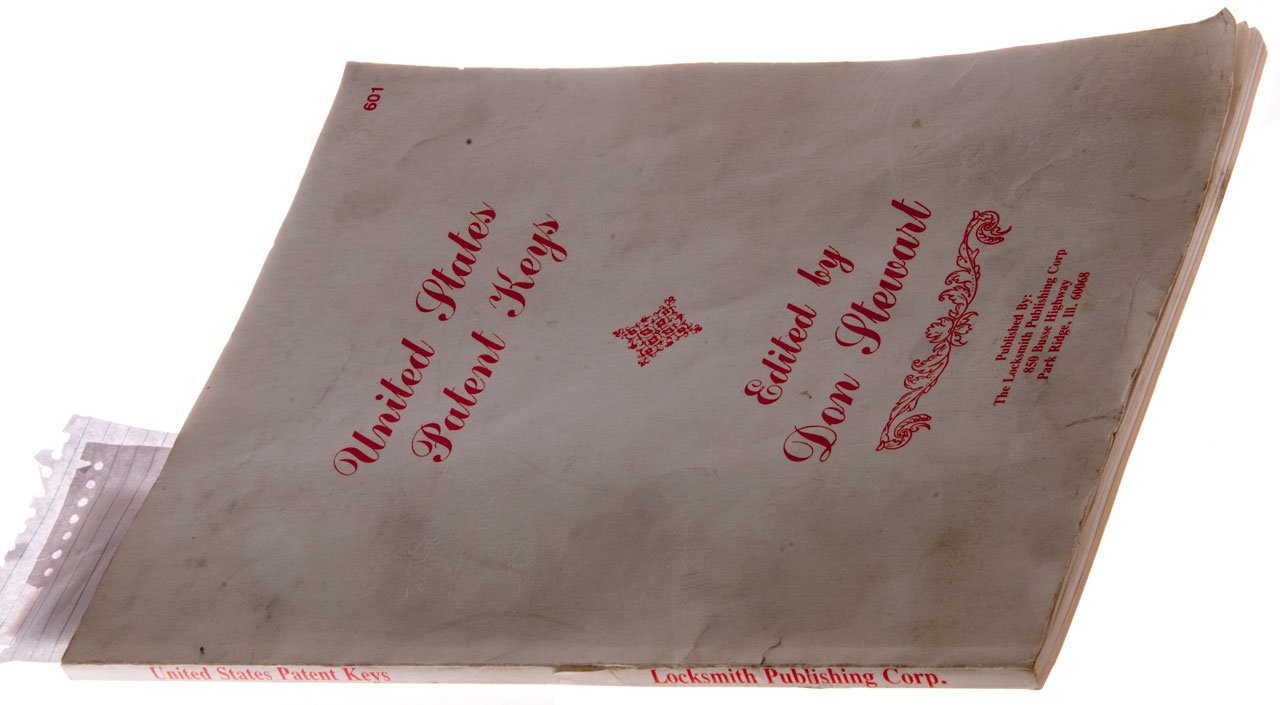 601
United States
Patent Keys
Edited by
Don Stewart
Published By:
The Locksmith Publishing Corp
850 Busse Highway
Park Ridge, Ill. 60068
United States Patent Keys
Locksmith Publishing Corp.